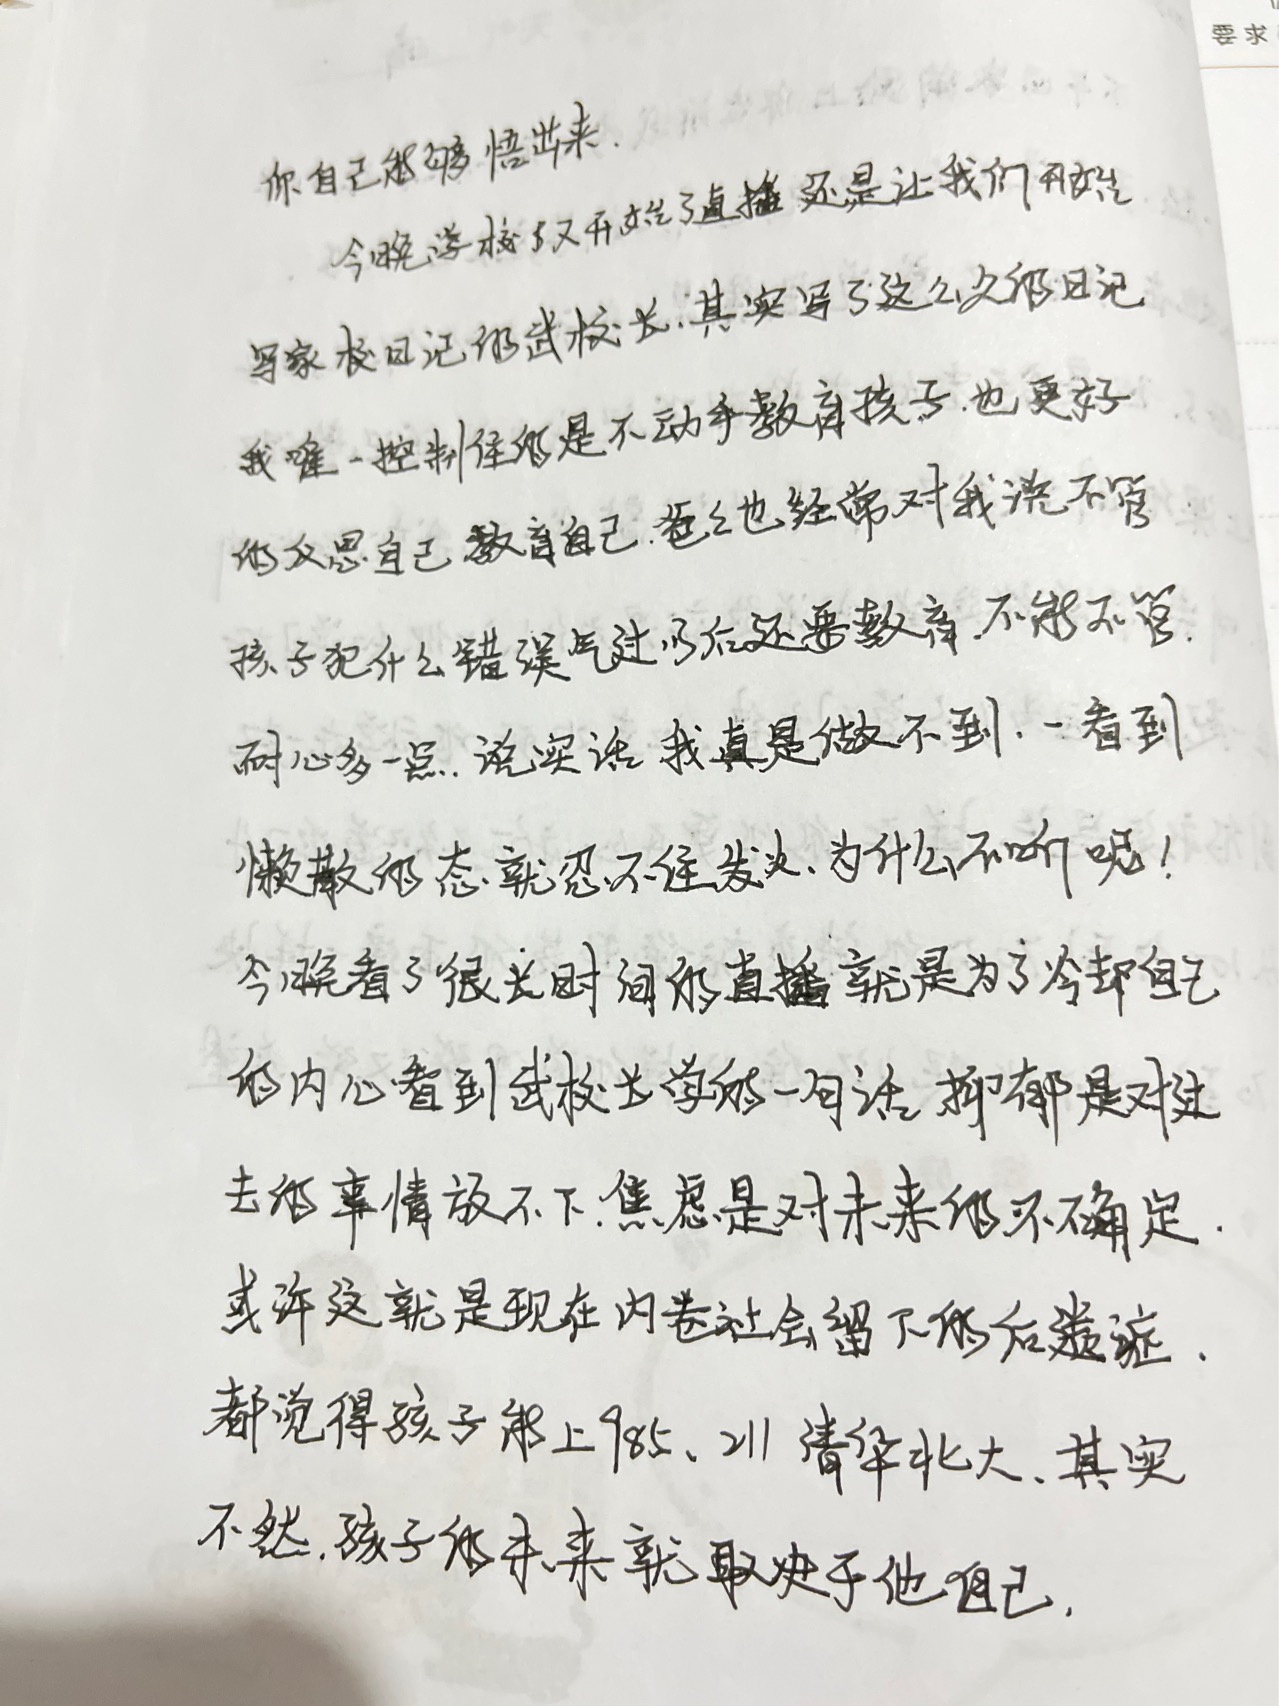 要求
你自己能够悟出来.
今晚学校又开始了直播 还是让我们开始
写家校日记的武校长.其实写了这么久的日记
我唯一控制住的是不动手教育孩子.也更好
的反思自己 教育自己.爸爸也经常对我说不管
孩子犯什么错误气过以后还要教育.不能不管.
耐心多一点..说实话 我真是做不到.一看到
懒散的态就忍不住发火、为什么不听呢！
今晚看了很长时间的直播就是为了冷却自己
的内心看到武校长学的一句话 抑郁是对过
去的事情放不下.焦虑是对未来的不确定.
或许这就是现在内卷社会留下的后遗症.
都觉得孩子能上985、211 清华北大、其实
不然.孩子的未来就取决于他自己.